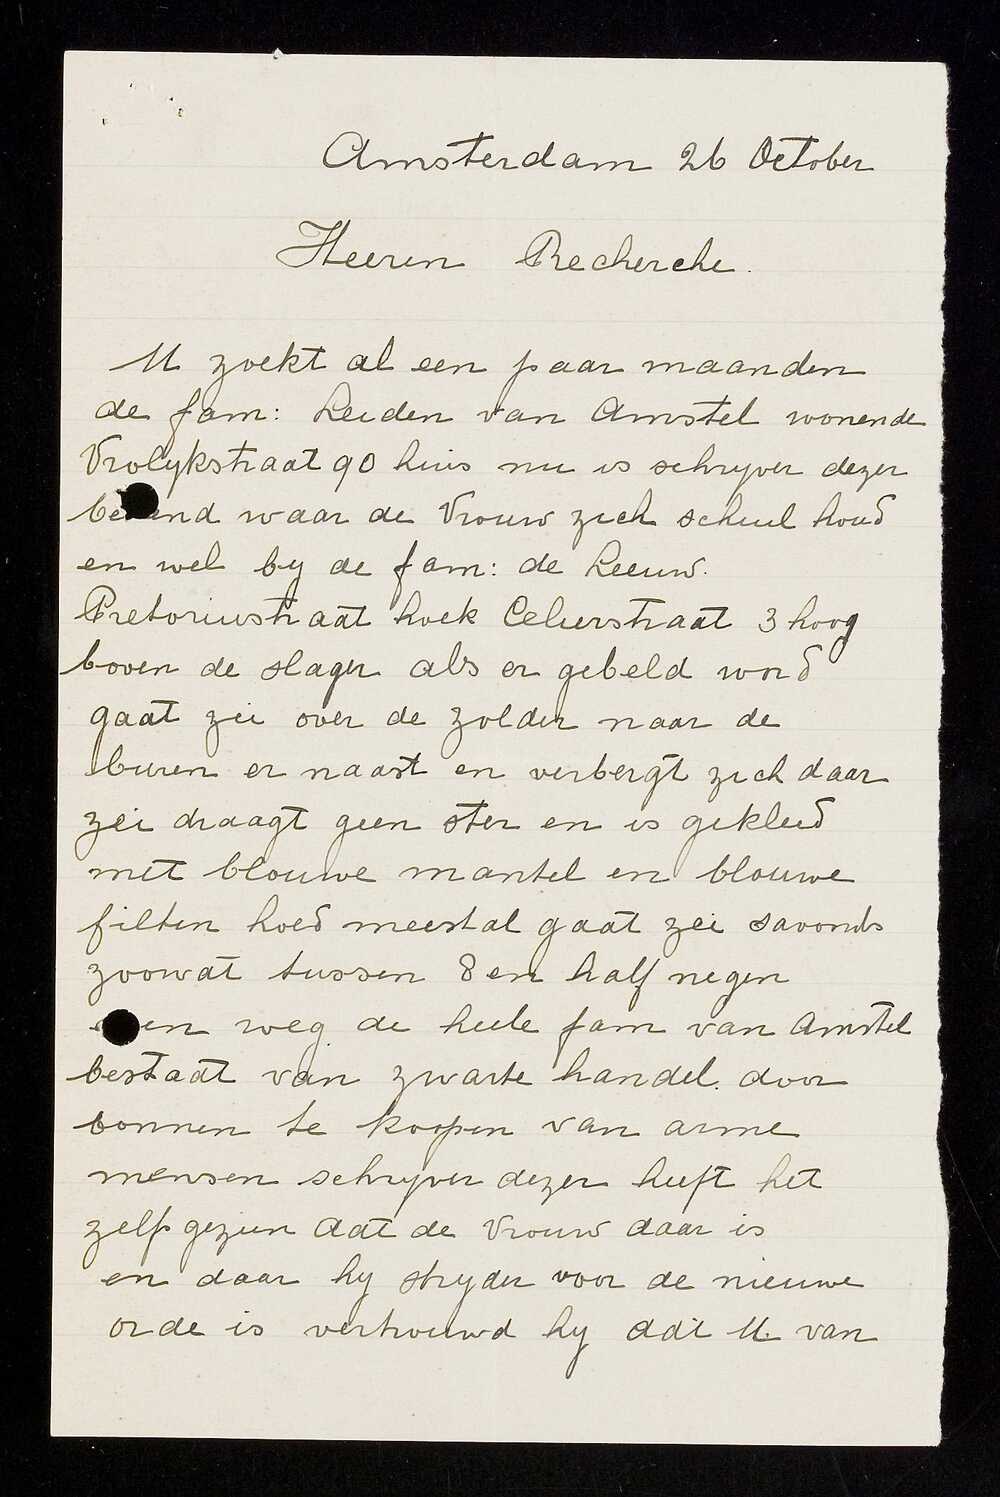 Amsterdam 26 October
Heeren Recherche.
U zoekt al een paar maanden
de fam: Leiden van Amstel wonende
Vrolykstraat 90 huis nu is schryver dezer
bekend waar de Vrouw zich schuil houd
en wel by de fam: de Leeuw.
Pretoriustraat hoek Celierstraat 3 hoog
boven de slager als er gebeld word
gaat zei over de zolder naar de
buren er naast en verbergt zich daar
zei draagt geen ster en is gekleed
met blouwe mantel en blouwe
filten hoed meestal gaat zei savonds
zoowat tussen 8 en half negen
weg de heele fam van Amstel
bestaat van zwarte handel. door
bonnen te koopen van arme
mensen schryver dezer heeft het
zelf gezien dat de Vrouw daar is
en daar hy stryder voor de nieuwe
orde is vertrouwd hy dat U. van